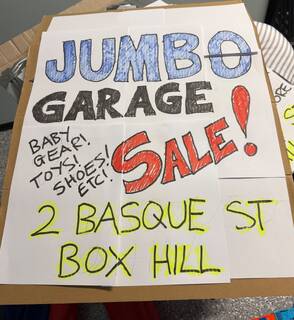 JUMBO
GARAGE
SALE!
BABY
GEAR!
TOYS!
SHOES!
ETC!
2 BASQUE ST
BOX HILL